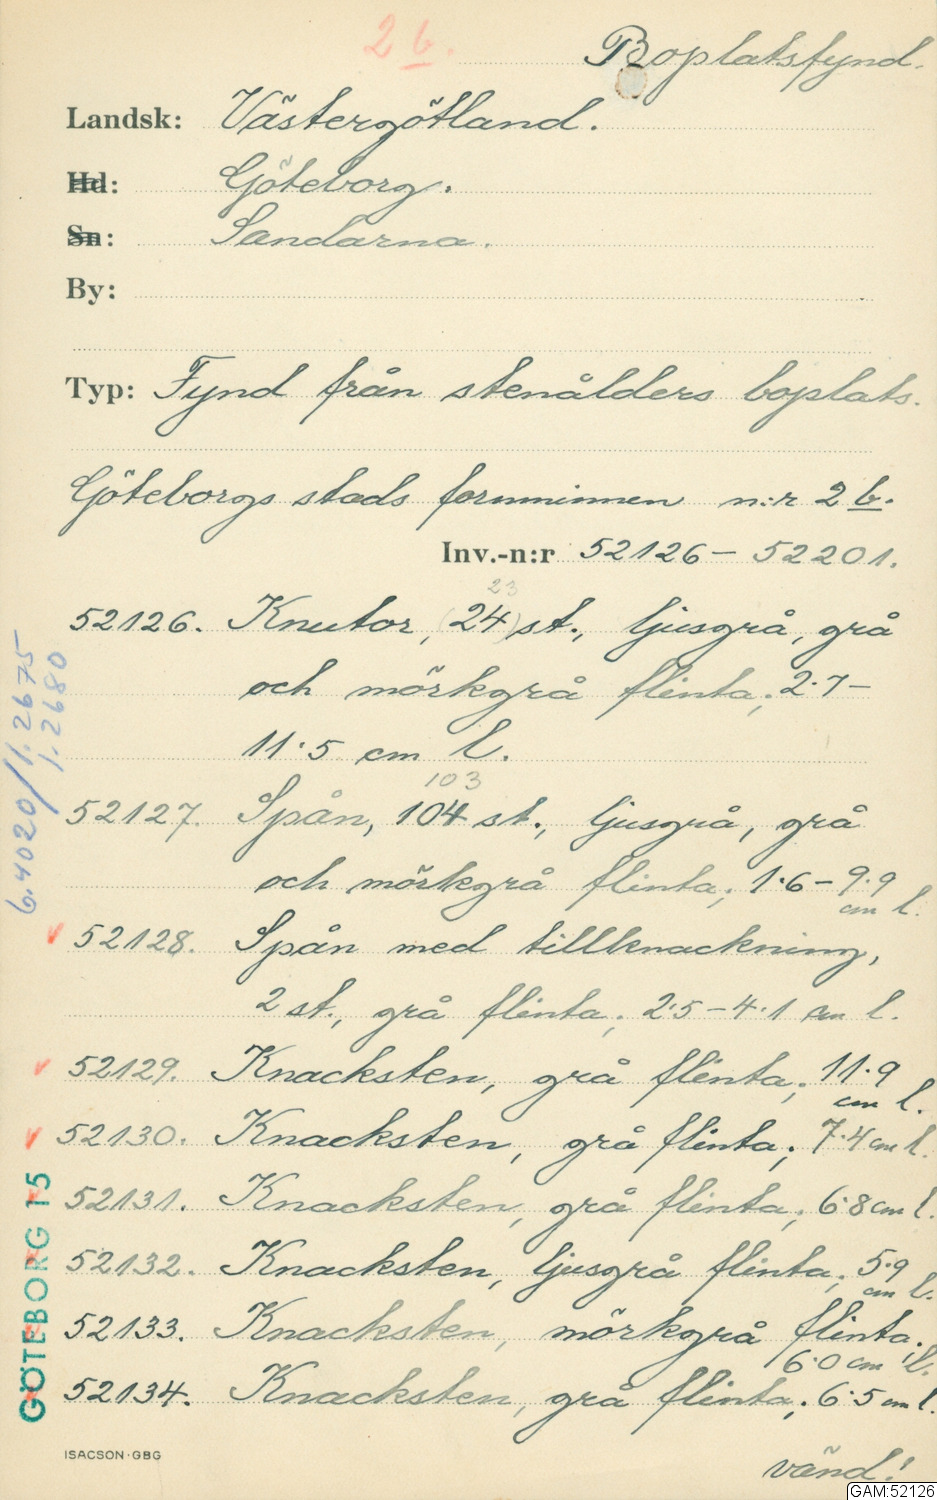 2 b.
Boplatsfynd.
Landsk: Västergötland.
Hd: Göteborg.
Sn: Sandarna.
By:
Typ: Fynd från stenålders boplats.
Göteborgs stads fornminnen n:r 2 b.
Inv.-n:r 52126 – 52201.
23
52126. Knutor, (24) st., ljusgrå, grå
och mörkgrå flinta; 2·7 –
11·5 cm l.
103
52127. Spån, 104 st., ljusgrå, grå
och mörkgrå flinta; 1·6 – 9·9
cm l.
52128. Spån med tillknackning,
2 st., grå flinta; 2·5 – 4·1 cm l.
52129. Knacksten, grå flinta; 11·9
cm l.
52130. Knacksten, grå flinta; 7·4 cm l.
52131. Knacksten, grå flinta; 6·8 cm l.
52132. Knacksten, ljusgrå flinta; 5·9
cm l.
52133. Knacksten, mörkgrå flinta;
6·0 cm l.
52134. Knacksten, grå flinta; 6·5 cm l.
vänd!
6.4020/1.2675
1.2680
GÖTEBORG 15
ISACSON·GBG
GAM:52126